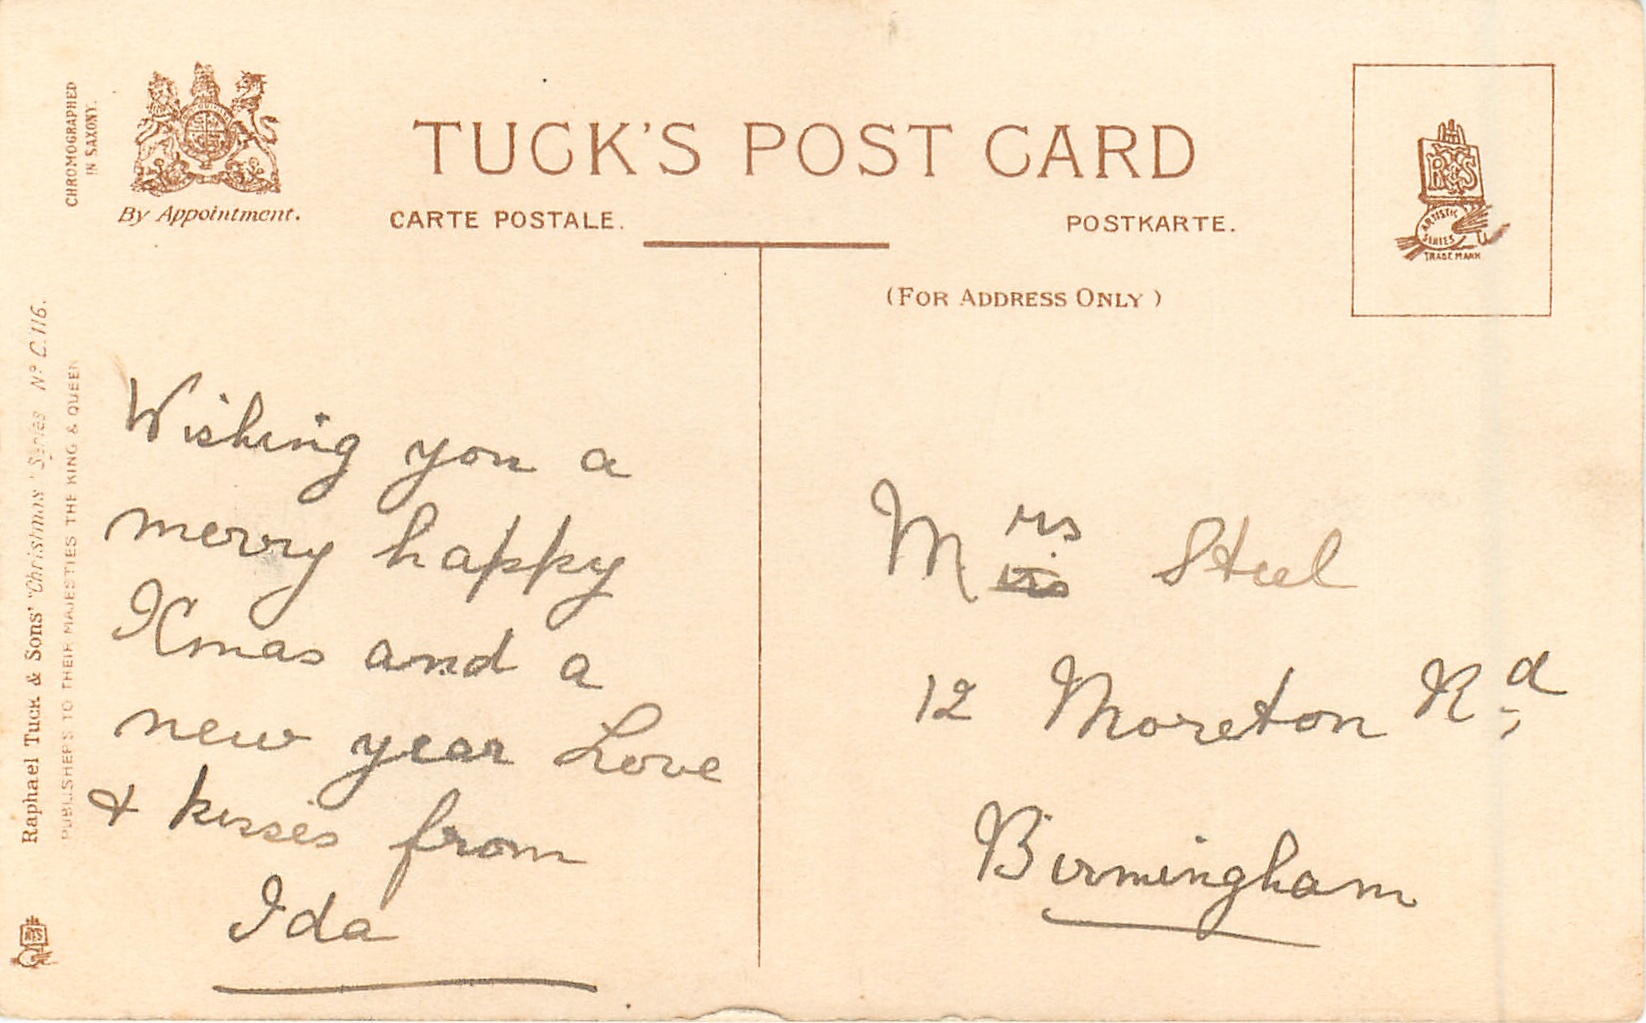 CHROMOGRAPHED
IN SAXONY.
By Appointment.
TUCK'S POST CARD
CARTE POSTALE.
POSTKARTE.
(FOR ADDRESS ONLY)
R & S
ARTISTIC
SERIES
TRADE MARK
Raphael Tuck & Sons' "Christmas" Series Nº C. 116.
PUBLISHERS TO THEIR MAJESTIES THE KING & QUEEN
Wishing you a
merry happy
Xmas and a
new year Love
& kisses from
Ida
Mrs Steel
12 Moreton Rd,
Birmingham